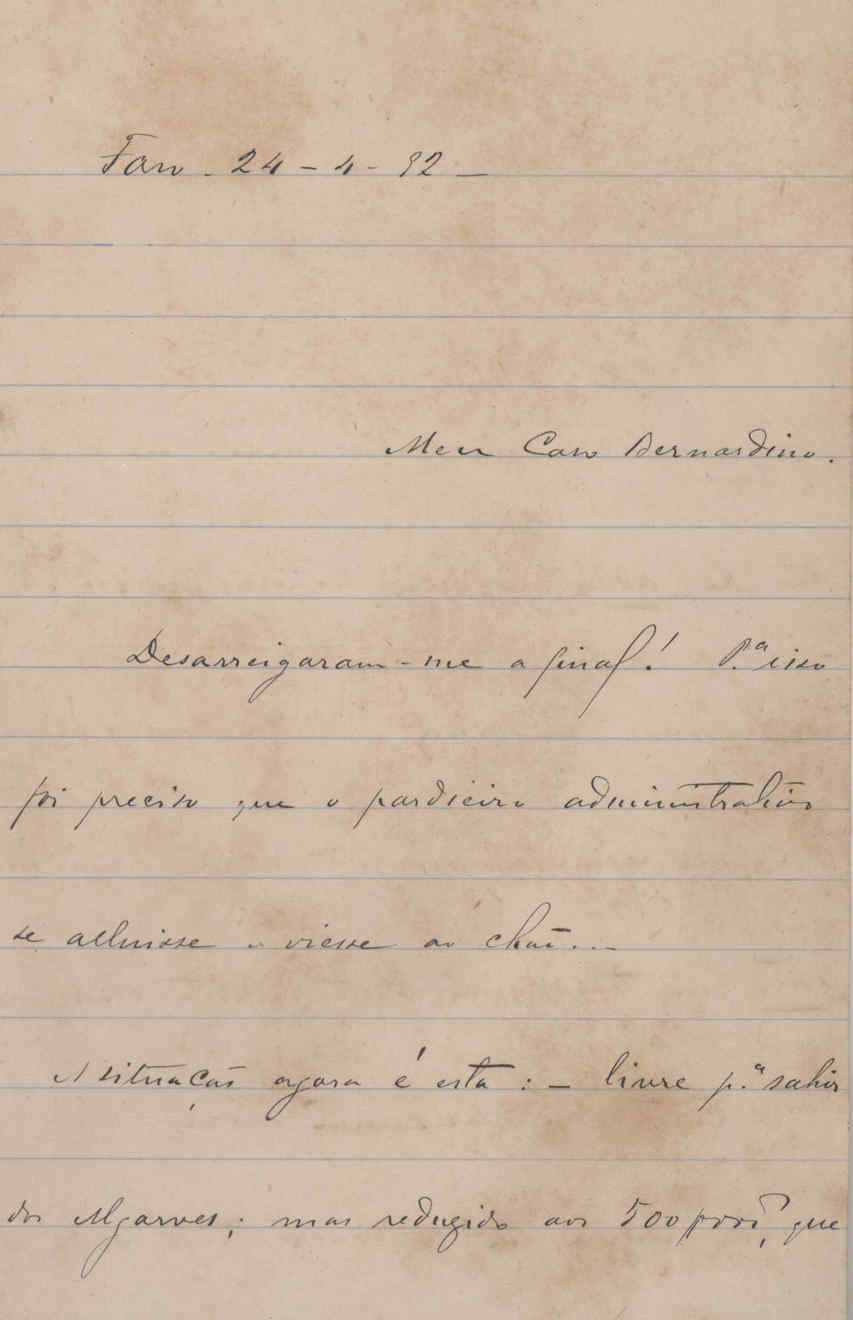 Faro. 24 - 4 - 92 -
Meu Caro Bernardino.
Desarreigaram-me afinal! P.ª isso
foi preciso que o pardieiro administrativo
se alluisse e viesse ao chão...
A situação agora é esta: - livre p.ª sahir
dos Algarves; mas reduzido aos 500 que